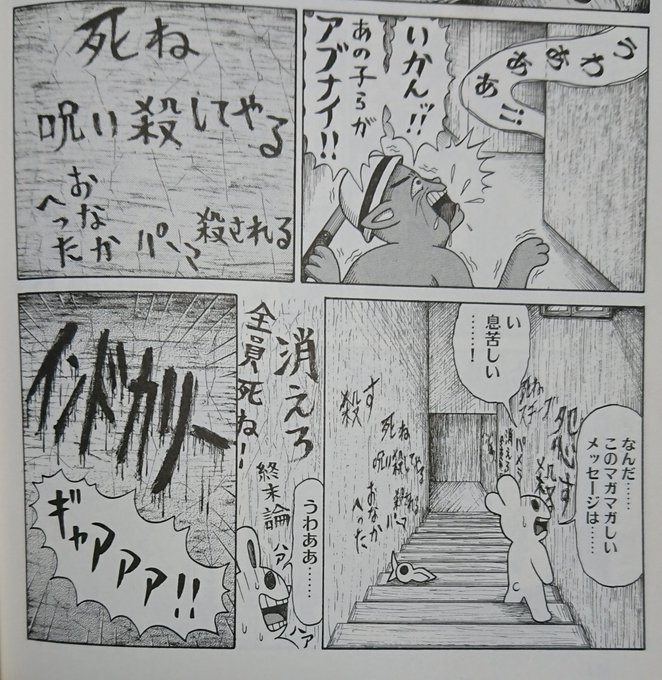 うわあああ!!
いかんッ!!
あの子らが
アブナイ!!
死ね
呪い殺してやる
殺される
おなか
へった
なんだ……
このマガマガしい
メッセージは……
い
息苦しい
……!
犯す
殺
死ね
消えろ
殺す
死ね
呪い殺してやる
殺される
おなか
へった
消えろ
全員死ね!
終末論
うわああ……
ハァ
ハァ
インドカリー
ギャアアア!!